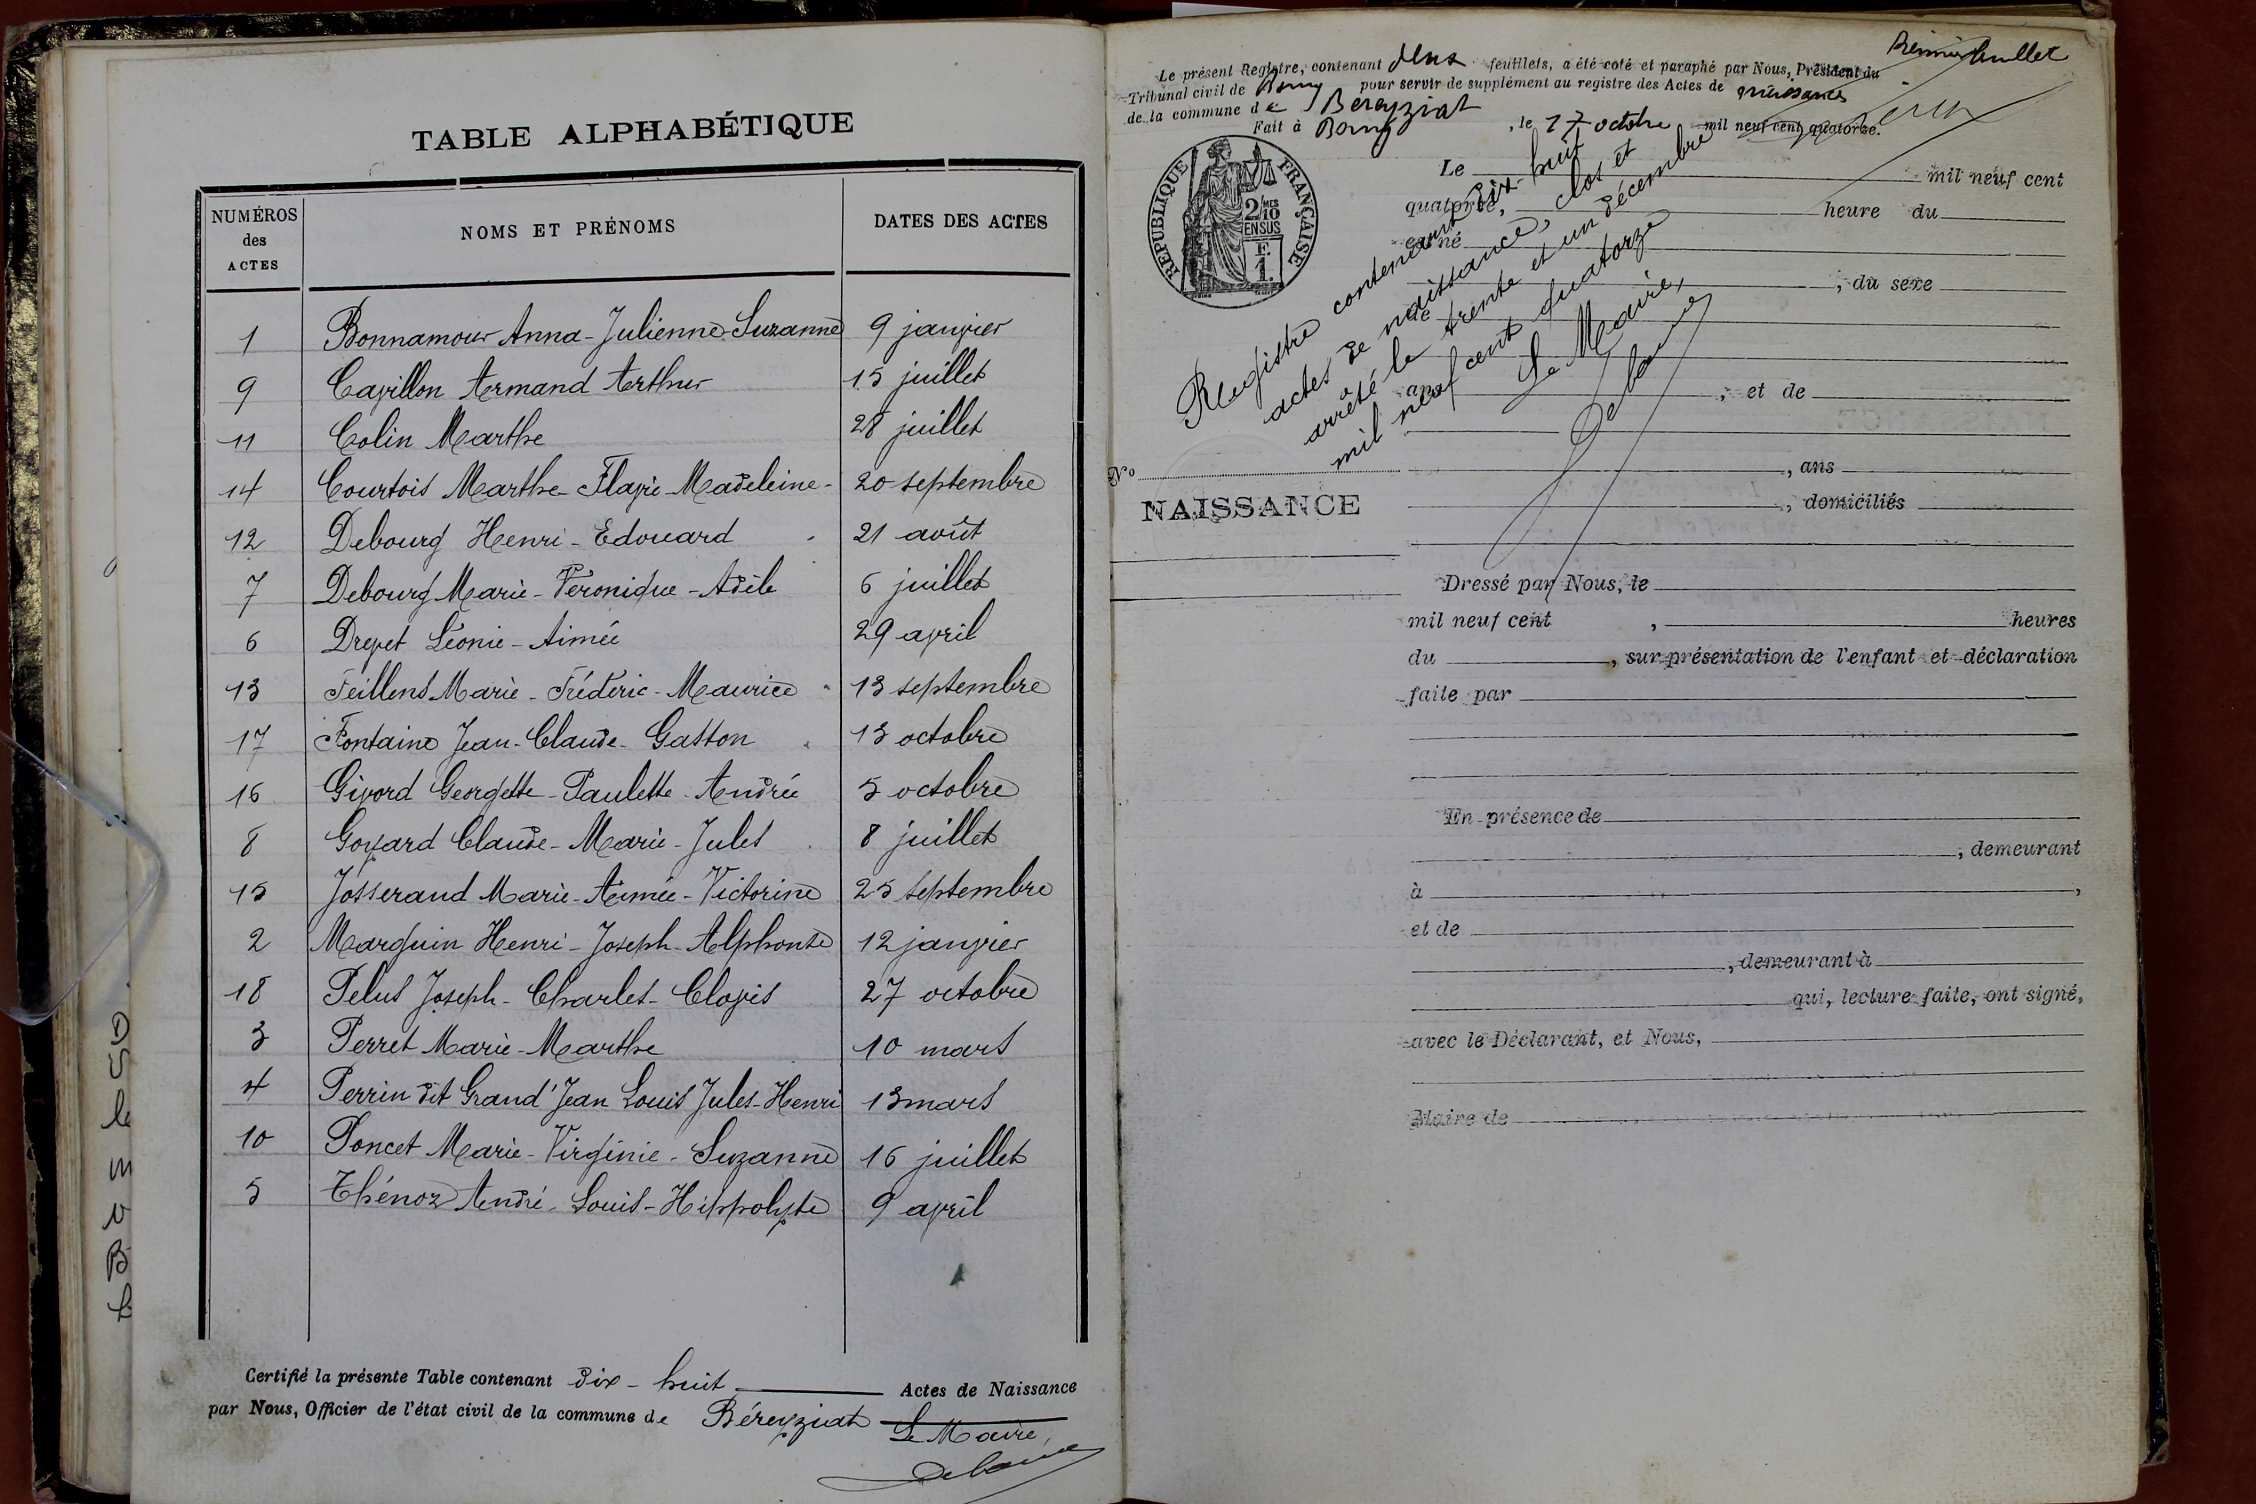 TABLE ALPHABÉTIQUE
NUMÉROS des ACTES NOMS ET PRÉNOMS DATES DES ACTES
1 Bonnamour Anna-Julienne-Suzanne 9 janvier
9 Cavillon Armand Arthur 15 juillet
11 Colin Marthe 28 juillet
14 Courtois Marthe-Flavie-Madeleine 20 septembre
12 Debourg Henri-Edouard 21 août
7 Debourg Marie-Véronique-Adèle 6 juillet
6 Drevet Léonie-Aimée 29 avril
13 Feillens Marie-Fréderic-Maurice 13 septembre
17 Fontaine Jean-Claude-Gaston 13 octobre
16 Givord Georgette-Paulette-Andrée 5 octobre
8 Goyard Claude-Marie-Jules 8 juillet
15 Josserand Marie-Aimée-Victorine 25 septembre
2 Marguin Henri-Joseph-Alphonse 12 janvier
18 Pelus Joseph-Charles-Clovis 27 octobre
3 Perret Marie-Marthe 10 mars
4 Perrin dit Grand'Jean Louis Jules-Henri 13 mars
10 Poncet Marie-Virginie-Suzanne 16 juillet
5 Thénoz André-Louis-Hippolyte 9 avril
Certifié la présente Table contenant dix-huit Actes de Naissance
par Nous, Officier de l'état civil de la commune de Béreyziat
Le Maire,
Premier feuillet
Le présent Registre, contenant deux feuillets, a été coté et paraphé par Nous, Président du
Tribunal civil de Bourg pour servir de supplément au registre des Actes de naissances
de la commune de Bereyziat
Fait à Bourg, le 17 octobre mil neuf cent quatorze.
RÉPUBLIQUE FRANÇAISE
2/10 MES
EN SUS
F.
1.
Registre contenant dix-huit
actes de naissance, clos et
arrêté le trente et un décembre
mil neuf cent quatorze
Le Maire,
Le mil neuf cent
quatorze, heure du
est né
, du sexe
de
ans , et de
, ans
, domiciliés
N°
NAISSANCE
Dressé par Nous, le
mil neuf cent , heures
du , sur présentation de l'enfant et déclaration
faite par
En présence de
, demeurant
à ,
et de
, demeurant à
qui, lecture faite, ont signé,
avec le Déclarant, et Nous,
Maire de